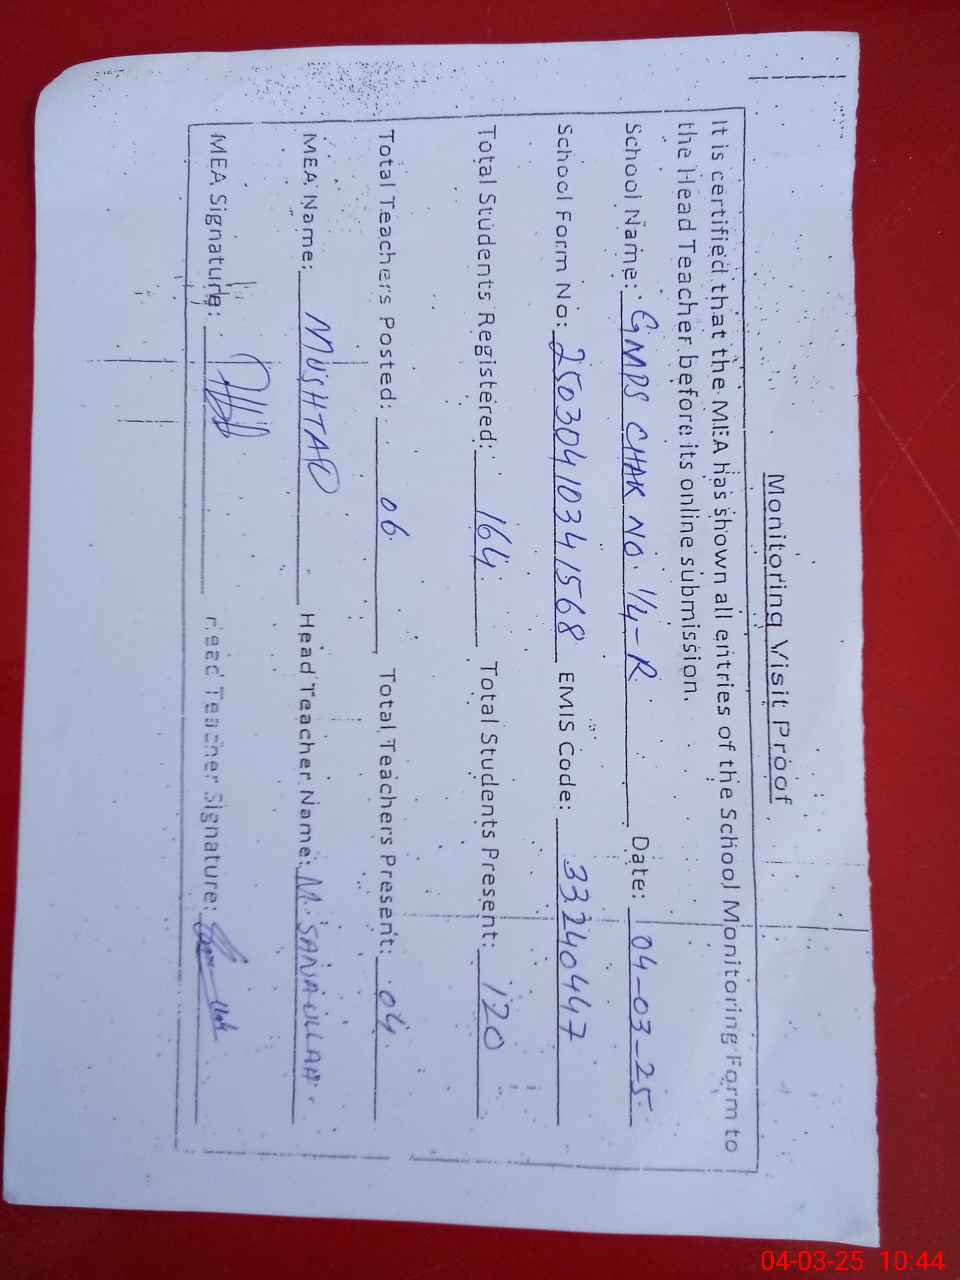 Monitoring Visit Proof
It is certified that the MEA has shown all entries of the School Monitoring Form to
the Head Teacher before its online submission.
School Name: GMPS CHAK NO. 1/4-R Date: 04-03-25
School Form No: 25030410341568 EMIS Code: 33240447
Total Students Registered: 164 Total Students Present: 120
Total Teachers Posted: 06 Total Teachers Present: 04
MEA Name: MUSHTAQ Head Teacher Name: M. SANAULLAH
MEA Signature: Head Teacher Signature:
04-03-25 10:44